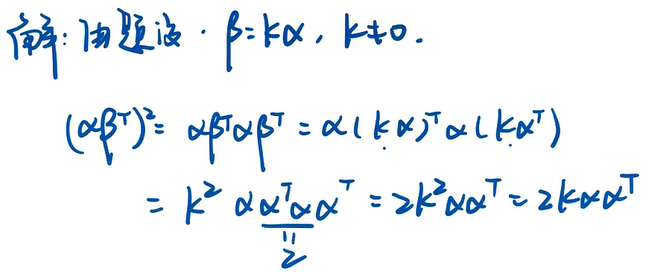 解:由题设. β=kα, k≠0.
(αβᵀ)²= αβᵀαβᵀ = α(kα)ᵀα(kαᵀ)
= k² ααᵀααᵀ = 2k²ααᵀ = 2kααᵀ
"
2